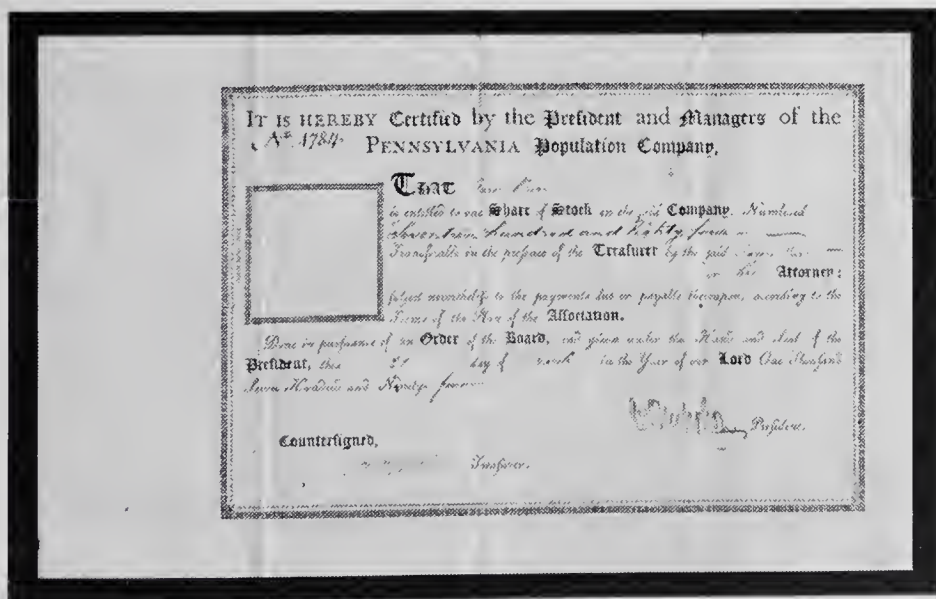 IT IS HEREBY Certified by the President and Managers of the
No. 1784 PENNSYLVANIA Population Company,
THAT
is entitled to one Share of Stock in the said Company. Numbered
Seventeen hundred and Eighty four
Transferable in the presence of the Treasurer by the said
or his Attorney;
subject nevertheless to the payments due or payable thereupon, according to the
Terms of the Plan of the Association.
Done in pursuance of an Order of the Board, and given under the Hand and Seal of the
President, this day of in the Year of our Lord One Thousand
Seven Hundred and Ninety four
President.
Countersigned,
Treasurer.